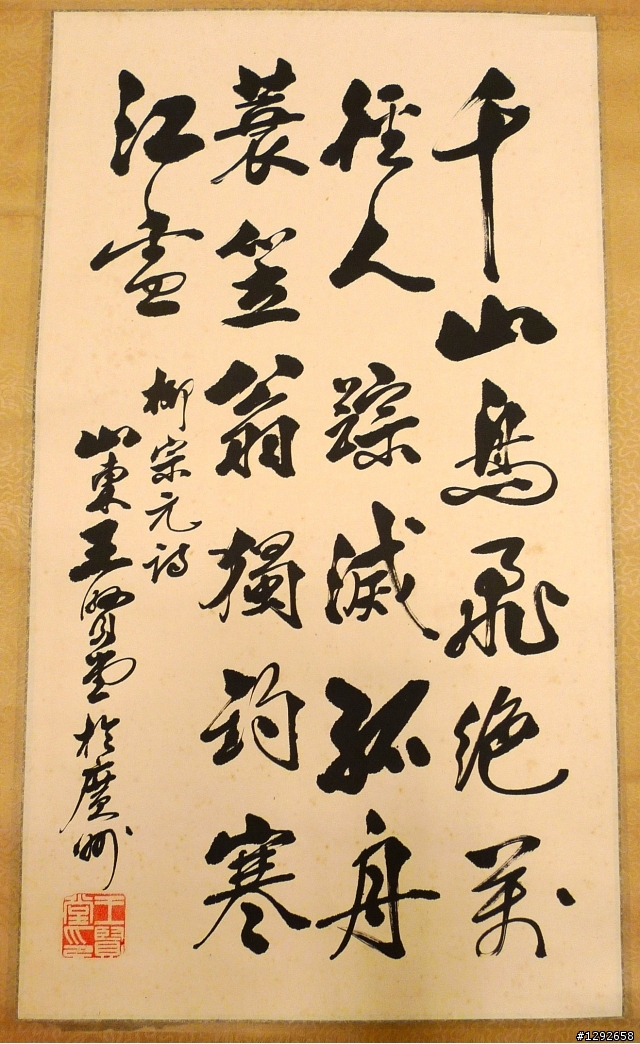 千山鳥飛絕萬
徑人踪滅孤舟
蓑笠翁獨釣寒
江雪
柳宗元詩
山東王賢堂於廣州
王賢堂印
#1292658